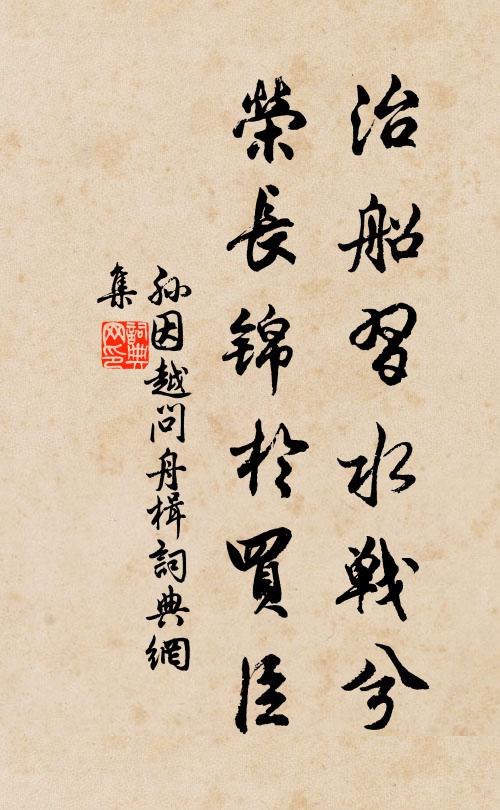 治船習水戰兮
榮長錦於買臣
孙因越問舟楫詞典網
集
詞典网印